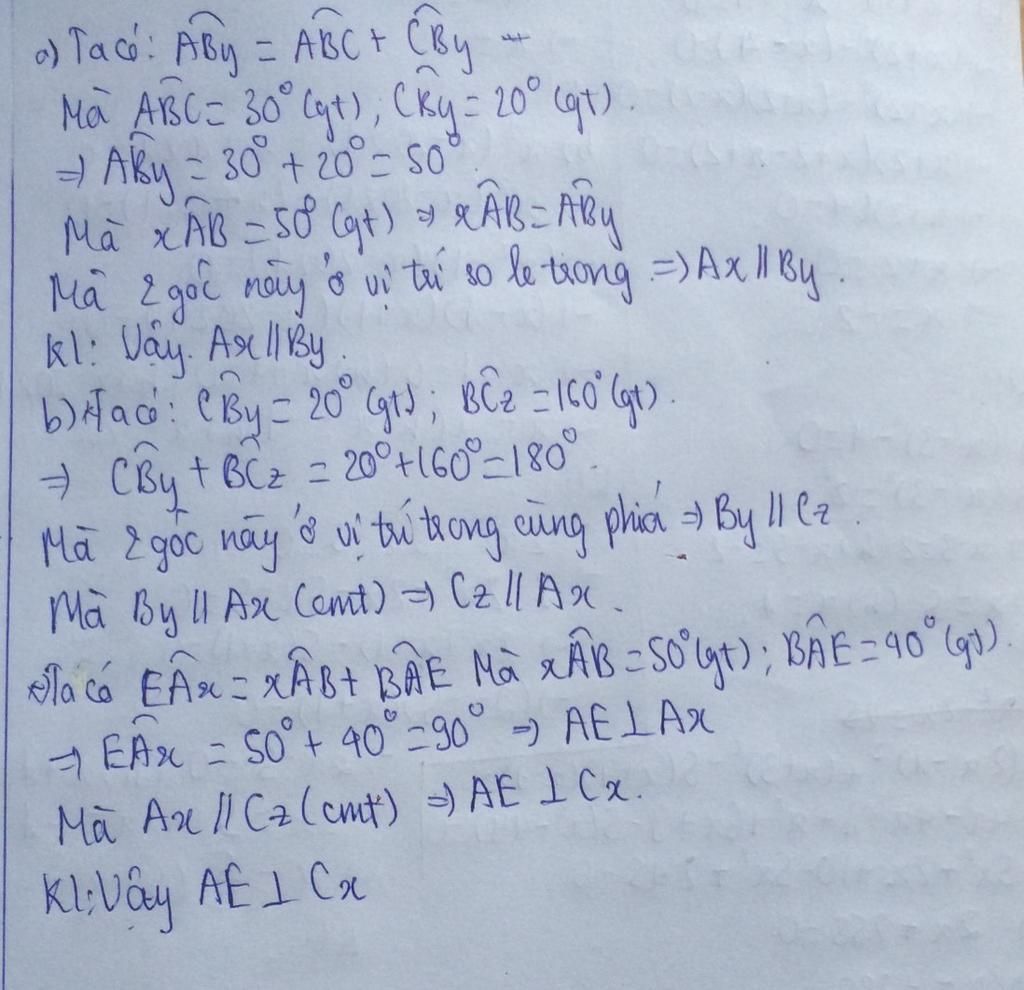 a) Ta có: ABŷ = AB̂C + CB̂y
Mà AB̂C = 30° (gt); CB̂y = 20° (gt).
⇒ AB̂y = 30° + 20° = 50°.
Mà xÂB = 50° (gt) ⇒ xÂB = AB̂y
Mà 2 góc này ở vị trí so le trong ⇒ Ax // By.
Kl: Vậy. Ax // By.
b) Ta có: CB̂y = 20° (gt); BĈz = 160° (gt).
⇒ CB̂y + BĈz = 20° + 160° = 180°.
Mà 2 góc này ở vị trí trong cùng phía ⇒ By // Cz.
Mà By // Ax (cmt) ⇒ Cz // Ax.
Ta có EÂx = xÂB + BÂE Mà xÂB = 50° (gt); BÂE = 40° (gt).
⇒ EÂx = 50° + 40° = 90° ⇒ AE ⊥ Ax
Mà Ax // Cz (cmt) ⇒ AE ⊥ Cx.
Kl: Vậy AE ⊥ Cx